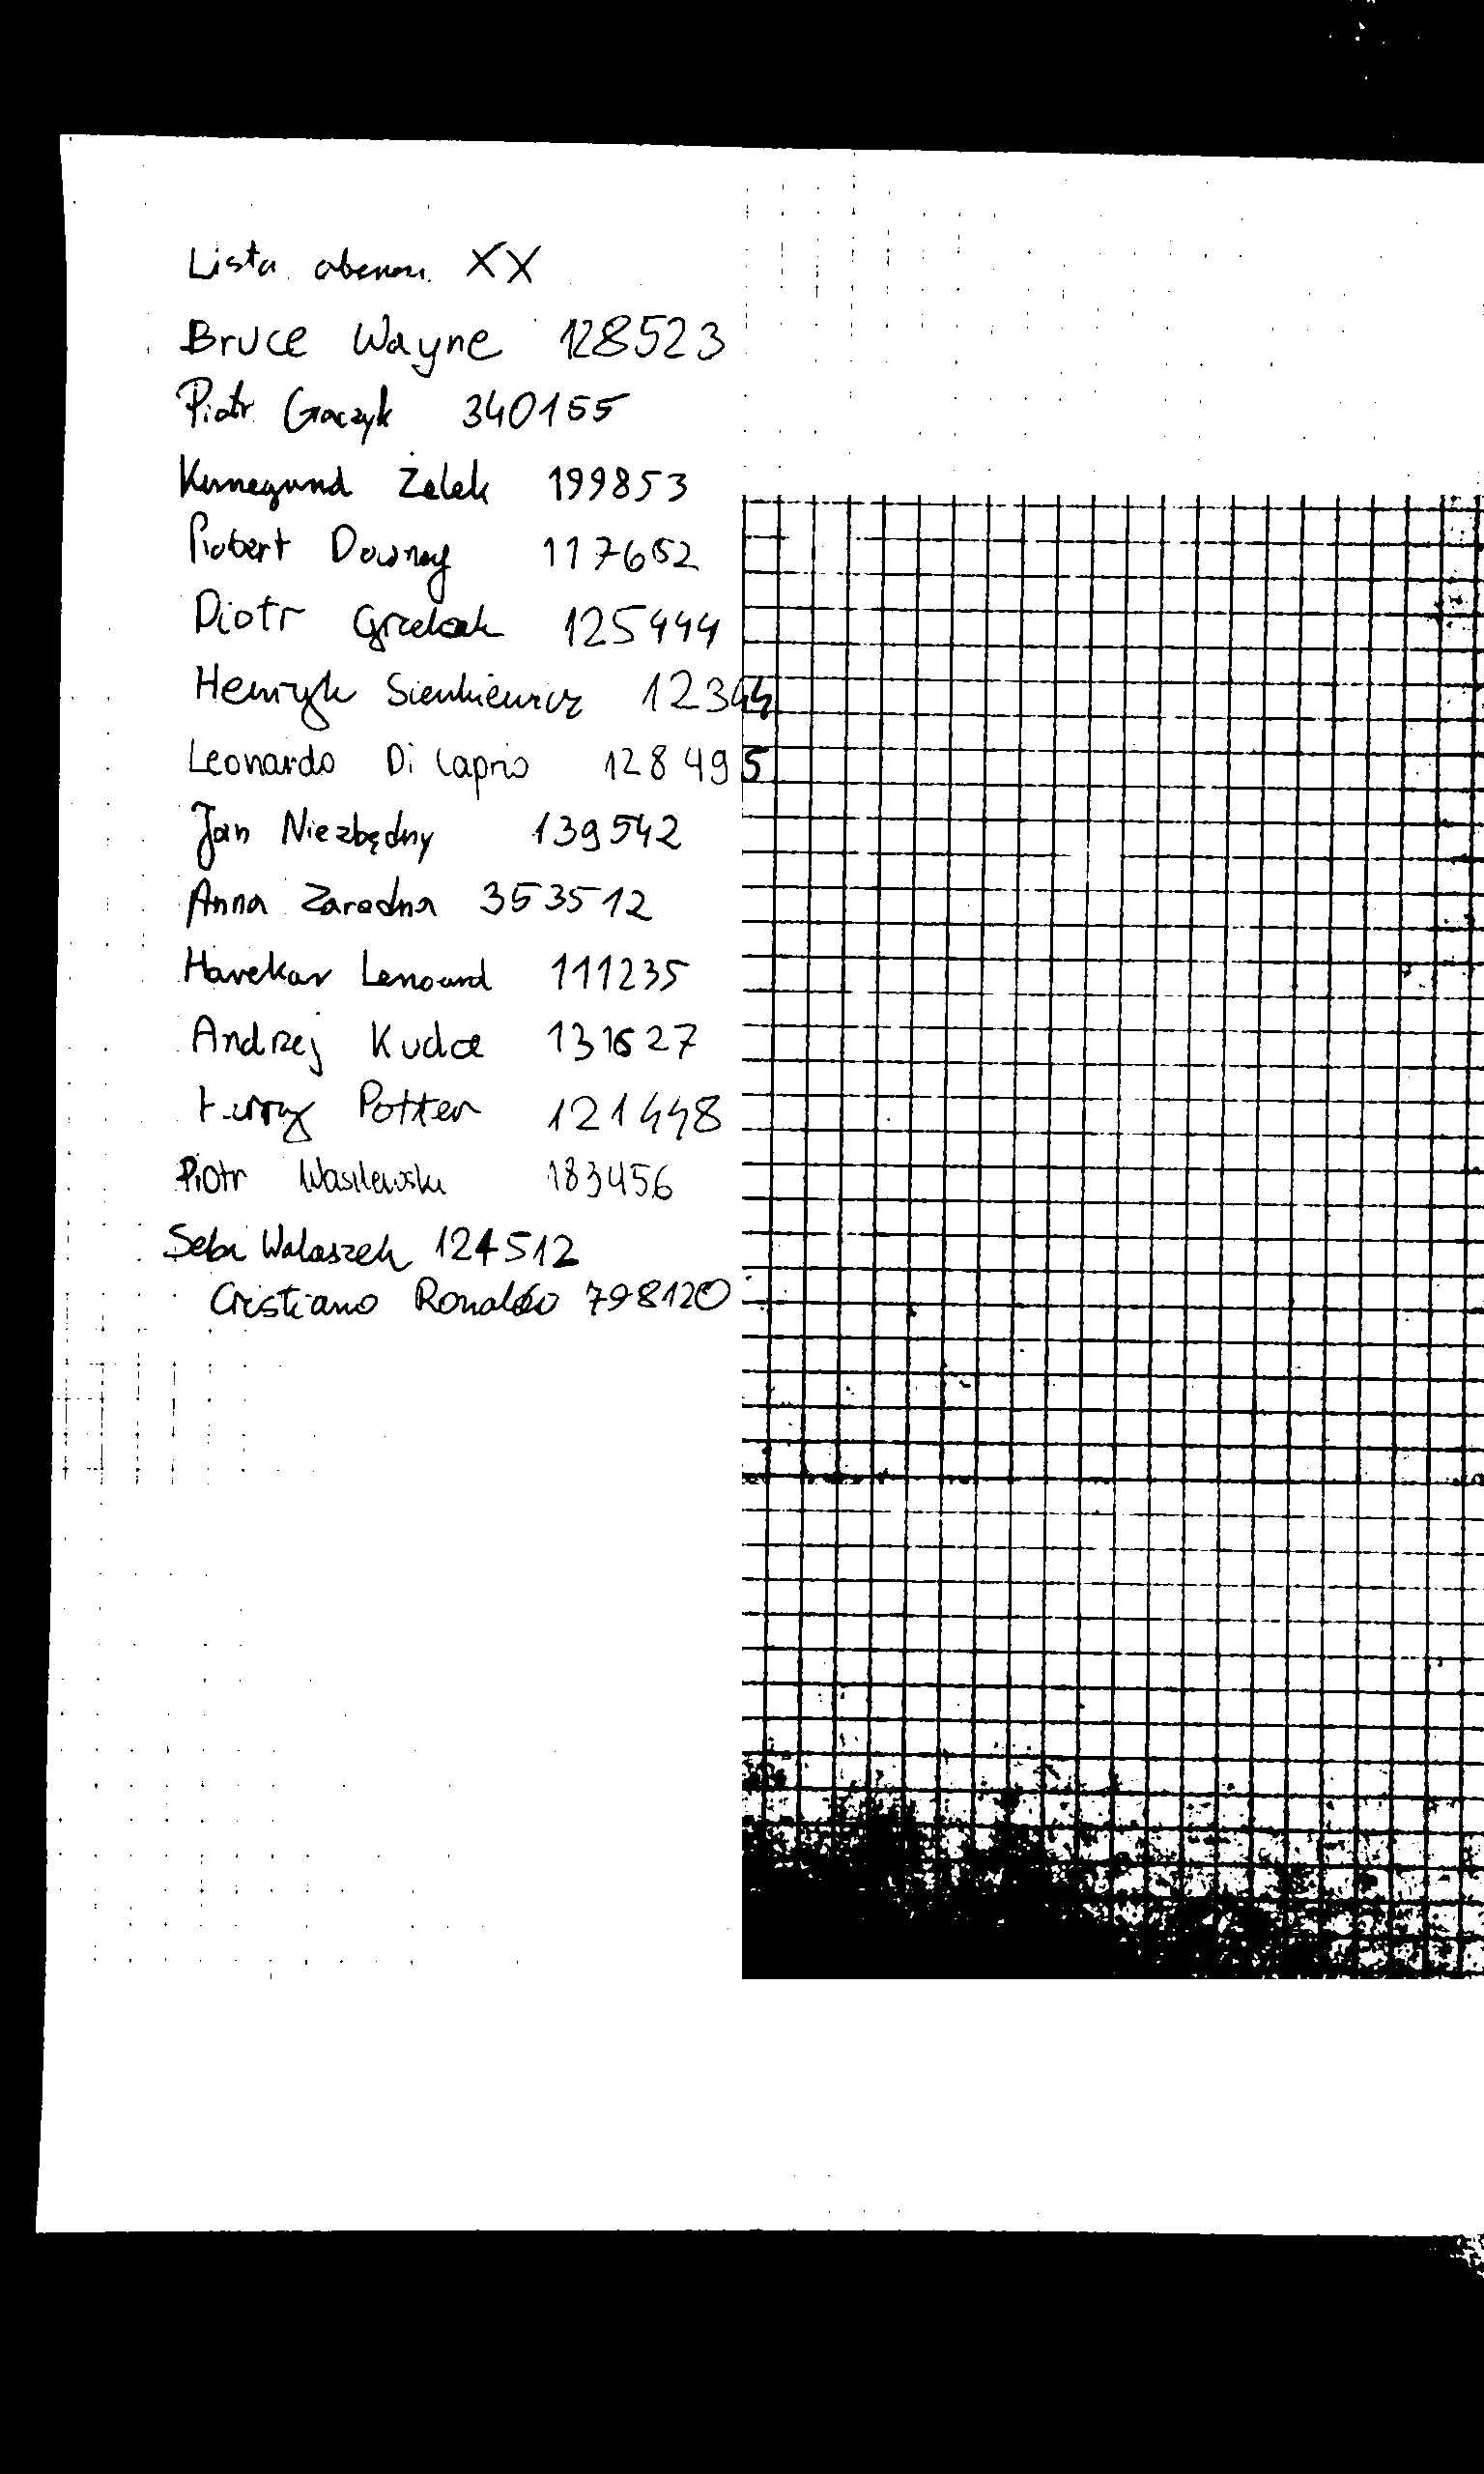 Lista obecności XX
Bruce Wayne 128523
Piotr Graczyk 340155
Kunegund Żelek 199853
Robert Downey 117652
Piotr Grzelak 125444
Henryk Sienkiewicz 12344
Leonardo Di Caprio 128495
Jan Niezbędny 139542
Anna Zaradna 353512
Harekar Lenoard 111235
Andrzej Kudca 131627
Harry Potter 121448
Piotr Wasilewski 183456
Seba Walaszek 124512
Cristiano Ronaldo 798120